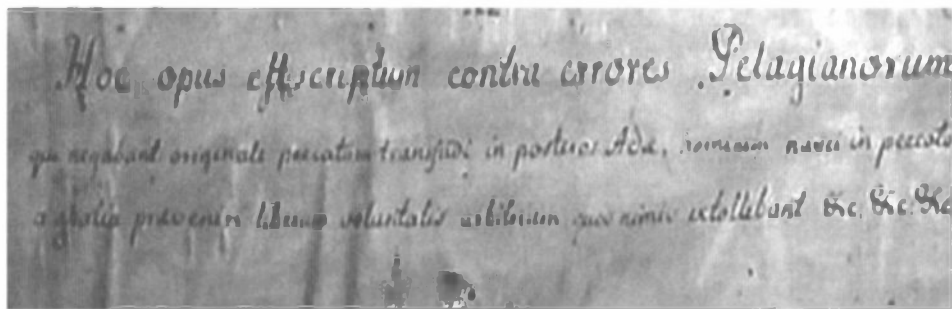 Hoc opus est scriptum contra errores Pelagianorum
qui negabant originale peccatum transfudi in posteros Adæ, hominem nasci in peccato
a gratia preveniri liberum voluntatis arbitrium quod nimis extollebant &c. &c. &c